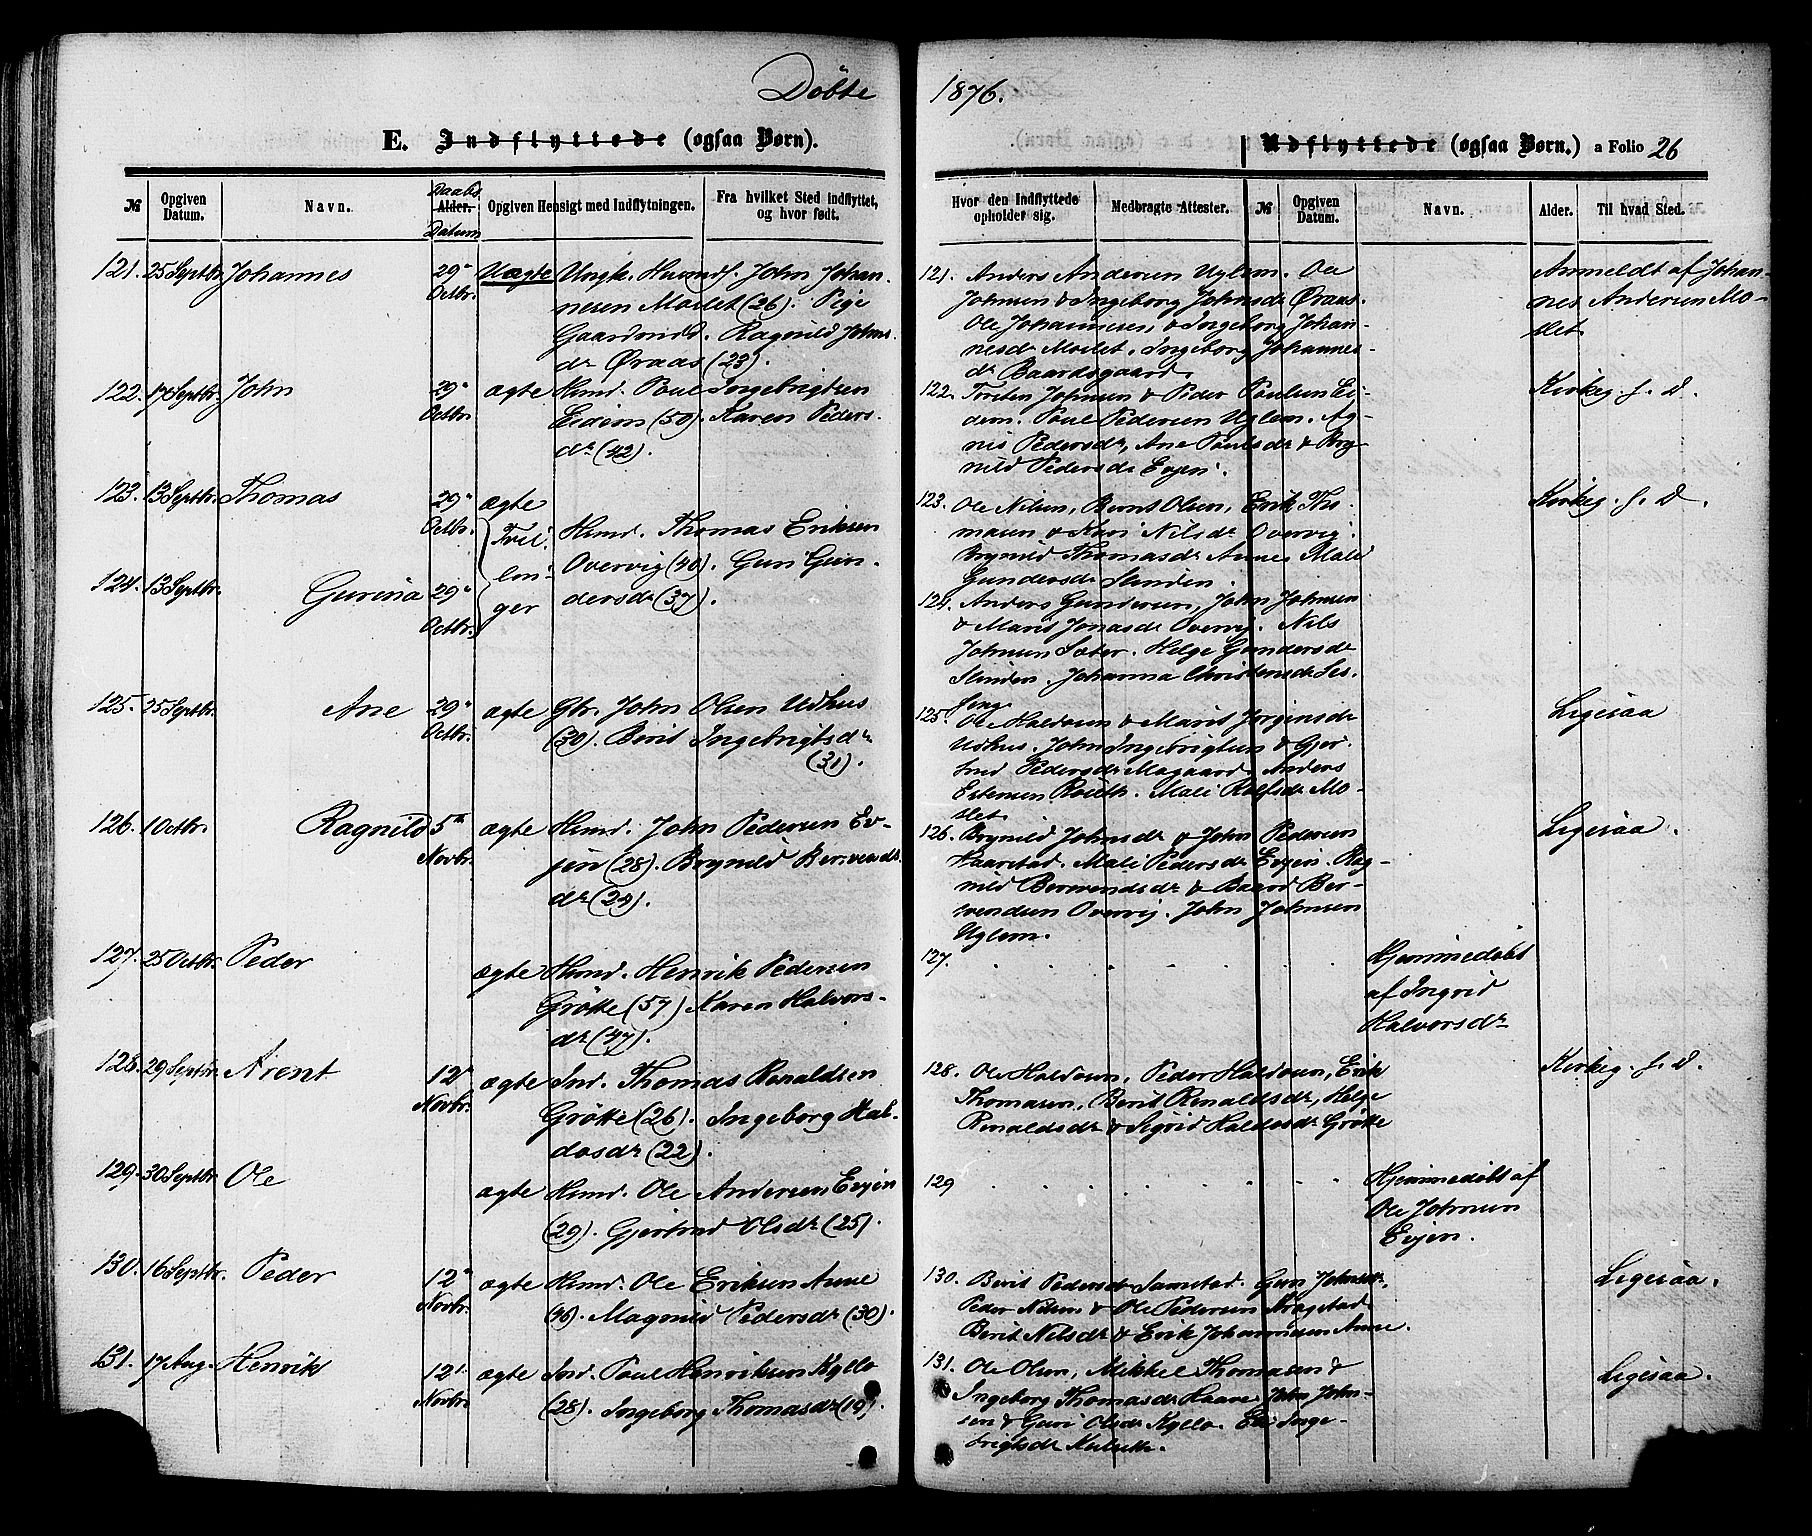 Döbte 1876.
E. Indflyttede (ogsaa Børn).
Udflyttede (ogsaa Børn.) a Folio 26
№ Opgiven Datum. Navn. Daabs Alder. Datum Opgiven Hensigt med Indflytningen. Fra hvilket Sted indflyttet, og hvor født.
Hvor den Indflyttede opholder sig. Medbragte Attester. № Opgiven Datum. Navn. Alder. Til hvad Sted.
121. 25 Septbr. Johannes 29' Octbr. Uægte Ungk. Husmdf. John Johan-
nesen Moslet (26). Pige
Gaardmdd. Ragnild Johns
dr Øraas (23).
122. 17 Septbr. John 29' Octbr. ægte Husmd. Poul Ingebrigtsen
Eidem (50). Karen Peders-
dr (42).
123. 13 Septbr. Thomas 29' Octbr. ægte
Tvil-
lin-
ger
Husmd. Thomas Eriksen
Overvig (40). Guri Gun-
dersdr (37).
124. 13 Septbr. Gurina 29' Octbr.
125. 25 Septbr. Ane 29' Octbr. ægte Gbr. John Olsen Udhus
(30). Berit Ingebrigtsdr
(31).
126. 1 Octbr. Ragnild 5te Novbr. ægte Husmd. John Pedersen Ev-
jen (28). Brynild Bersvendsdr
dr (24).
127. 25 Octbr. Peder ægte Husmd. Henrik Pedersen
Grötte (57) Karen Halvors-
dr (47).
128. 29 Septbr. Arent 12' Novbr. ægte Ind. Thomas Renaldsen
Grötte (26). Ingeborg Hal-
dosdr (22).
129. 30 Septbr. Ole ægte Husmd. Ole Andersen Evjen
(29). Gjertrud Olsdr (25).
130. 16 Septbr. Peder 12' Novbr. ægte Husmd. Ole Eriksen Aune
(46). Magnild Pedersdr (30).
131. 17 Aug. Henrik 12' Novbr. ægte Ind. Paul Henriksen Kyllo
(28). Ingeborg Thomasdr (19).
121. Anders Andersen Uglem. Ole
Johnsen & Ingeborg Johnsdr Øraas.
Ole Johannesen, & Ingeborg Johan-
nesdr Moslet. Ingeborg Johannes-
dr Baardsgaard.
Anmeldt af Johan-
nes Andersen Mo-
slet
122. Torsten Johnsen & Peder Poulsen Ei-
dem. Poul Pedersen Uglem. Ag-
nis Pedersdr, Ane Poulsdr & Bry-
nild Pedersdr Evjen.
Kirkeg. f. D.
123. Ole Nilsen, Bernt Olsen, Erik Tho-
masen & Kari Nilsdr Overvig.
Brynild Thomasdr Aune. Mali
Gundersdr Slinden.
Kirkeg. f. D.
124. Anders Gundersen, John Johnsen
& Marit Jonasdr Overvig. Nils
Johnsen Sæter. Helge Gundersdr
Slinden. Johanna Christensdr Ses-
seng.
125. Ole Haldosen & Marit Jørginsdr
Udhus. John Ingebrigtsen & Gjer-
trud Pedersdr Mogaard. Anders
Estensen Rolseth. Mali Rolfsdr Mo-
slet.
Ligesaa
126. Brynild Johnsdr & John Pedersen
Haarstad. Mali Pedersdr Evjen. Rag-
nild Bersvendsdr & Baard Ber-
svendsen Overvig. John Johnsen
Uglem.
Ligesaa.
127. Hjemmedøbt
af Ingrid
Halvorsdr
128. Ole Haldosen, Peder Haldosen, Erik
Thomasen, Berit Renaldsdr, Helge
Renaldsdr & Sigrid Haldosdr Grötte
Kirkeg. f. D.
129 Hjemmedøbt af
Ole Johnsen
Evjen.
130. Berit Pedersdr Samstad. Guri Johnsdr,
Peder Nilsen & Ole Pedersen Kragstad.
Berit Nilsdr & Erik Johannesen Aune.
Ligesaa.
131. Ole Olsen, Mikkel Thomasen &
Ingeborg Thomasdr Haave. John John-
sen & Guri Olsdr Kyllo. Eli Inge-
brigtsdr
Ligesaa.